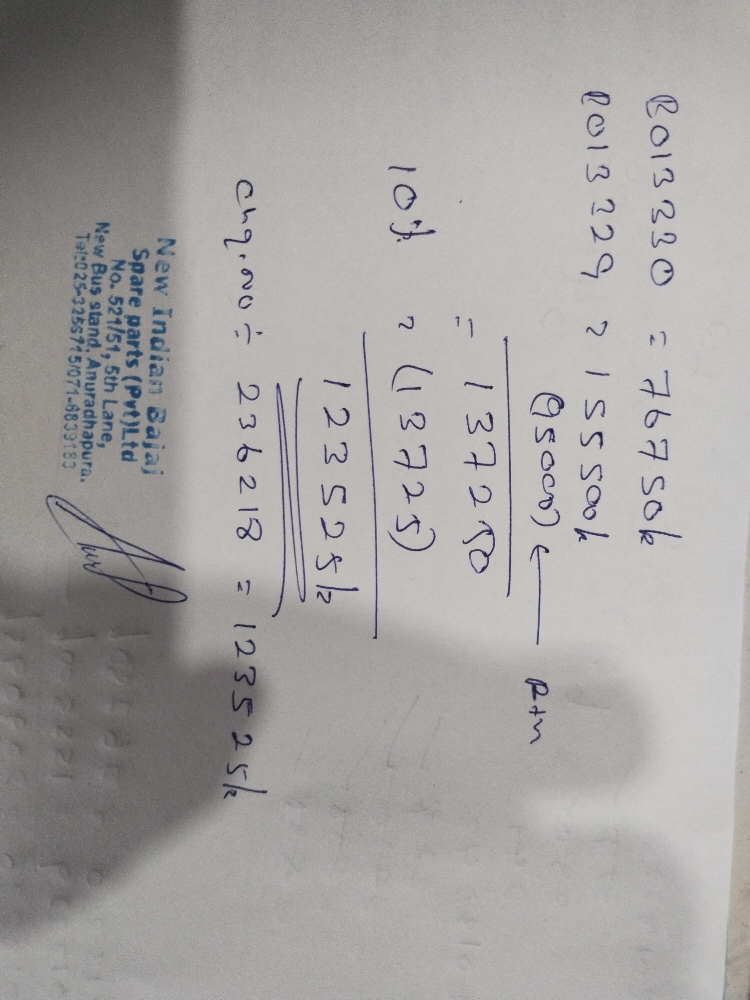 R013330 = 76750/=
R013329 = 155500/=
(95000) ← Rtn
= 137250
10% = (13725)
123525/=
chq.no ÷ 236218 = 123525/=
New Indian Bajaj
Spare parts (Pvt)Ltd
No. 521/51, 5th Lane,
New Bus stand, Anuradhapura.